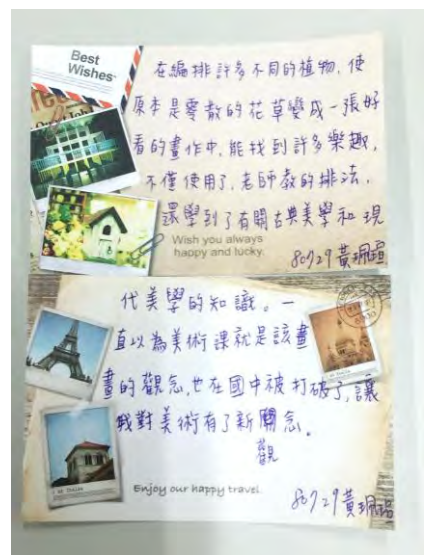 Best
Wishes
在編排許多不同的植物，使
原本是零散的花草變成一張好
看的畫作中，能找到許多樂趣，
不僅使用了，老師教的排法，
還學到了有關古典美學和現
Wish you always
happy and lucky.
80729黃珮瑄
代美學的知識。一
直以為美術課就是該畫
畫的觀念，也在國中被打破了，讓
我對美術有了新觀念。
Enjoy our happy travel.
80729黃珮瑄